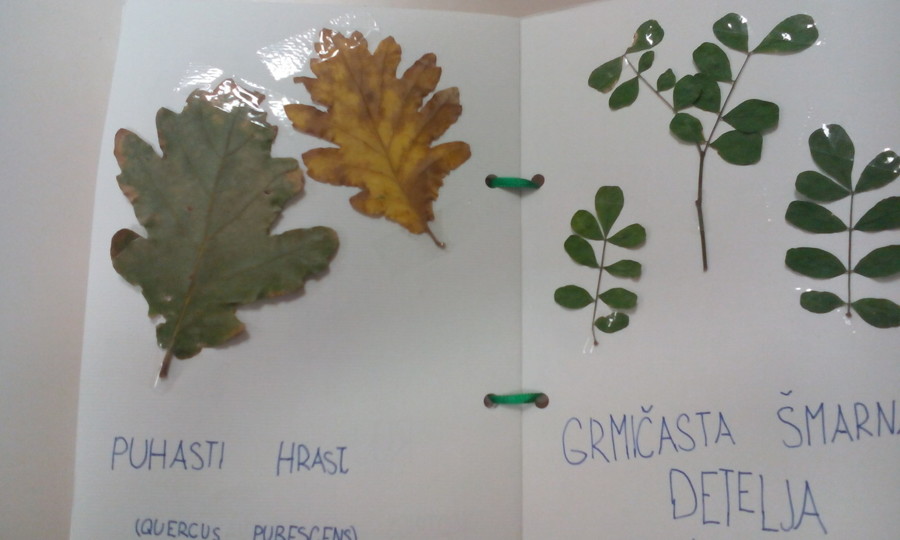 PUHASTI HRAST
(QUERCUS PUBESCENS)
GRMIČASTA ŠMARNA
DETELJA